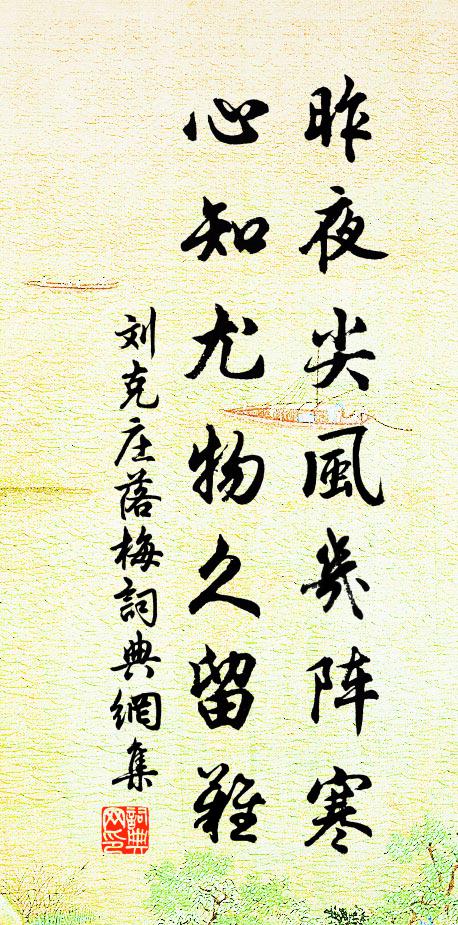 昨夜尖風幾阵寒
心知尤物久留難
刘克庄落梅詞典網集
詞典網印